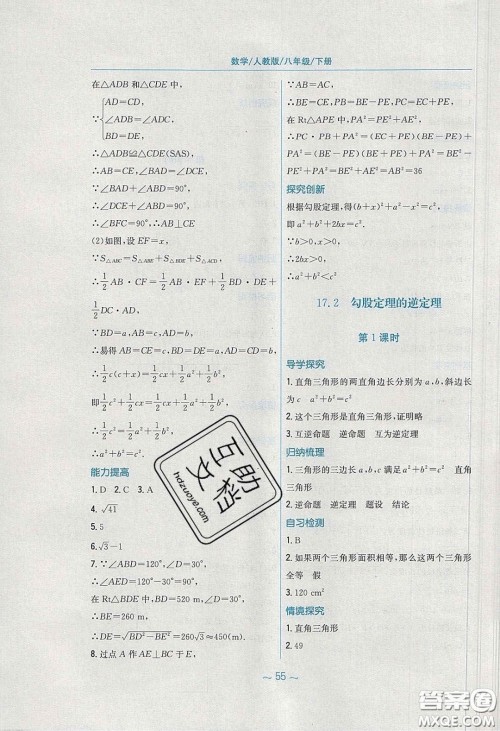 数学/人教版/八年级/下册
在△ADB和△CDE中,
AD=CD,
∵∠ADB=∠ADC,
BD=DE,
∴△ADB≌△CDE(SAS),
∴AB=CE,∠BAD=∠DCE,
∵∠BAD+∠ABD=90°,
∴∠ABD+∠DCE=90°,
∴∠BFC=90°,∴AB⊥CE
(2)如图,设EF=x,
∵S△ABC=S△ABD+S△BDE+S△ACD,
∴1/2AB·CF=1/2AB·EF+1/2BD·DE+
1/2CD·AD,
∵BD=a,AB=c,DE=a,
∴易得AB=CE=c,BD=DE=a,
∴1/2c(c+x)=1/2cx+1/2a²+1/2b²,
即1/2c²+1/2cx=1/2cx+1/2a²+1/2b²,
∴1/2c²=1/2a²+1/2b²,
∴a²+b²=c²
能力提高
1.D 2.C 3.A
4.√41
5.5
6.√3-1
7.∵∠ABD=120°,∠D=30°,
∴∠AED=120°-30°=90°,
在Rt△BDE中,BD=520 m,∠D=30°,
∴BE=260 m,
∴DE=√(BD²-BE²)=260√3≈450(m).
8.过点A作AE⊥BC于E,
∵AB=AC,∴BE=CE,
∵PB=BE-PE,PC=EC+PE,
在Rt△APE中,PA²=PE²+AE²,
∴PC·PB+PA²=(EC+PE)(BE-
PE)+PA²=(BE+PE)(BE-PE)+PA²=BE²-
PE²+PA²=BE²+AE²=AB²=36
探究创新
根据勾股定理,得(b+x)²+a²-x²=c²,
即a²+b²+2bx=c²,
∵b>0,x>0,
∴2bx>0,
∴a²+b²<c²
17.2 勾股定理的逆定理
第1课时
导学探究
1.直角三角形的两直角边长分别为a,b,斜边长
为c a²+b²=c²
2.这个三角形是直角三角形,证明略
3.互逆命题 逆命题 互为逆定理
归纳梳理
1.三角形的三边长a,b,c满足a²+b²=c² 直角
三角形
2.逆命题 逆定理 题设 结论
自习检测
1.B
2.如果两个三角形面积相等,那么这两个三角形
全等 假
3.120 cm²
情境探究
1.直角三角形
2.49
~ 55 ~
互助文档
hdzuoye.com
答案圈
MXQE.COM